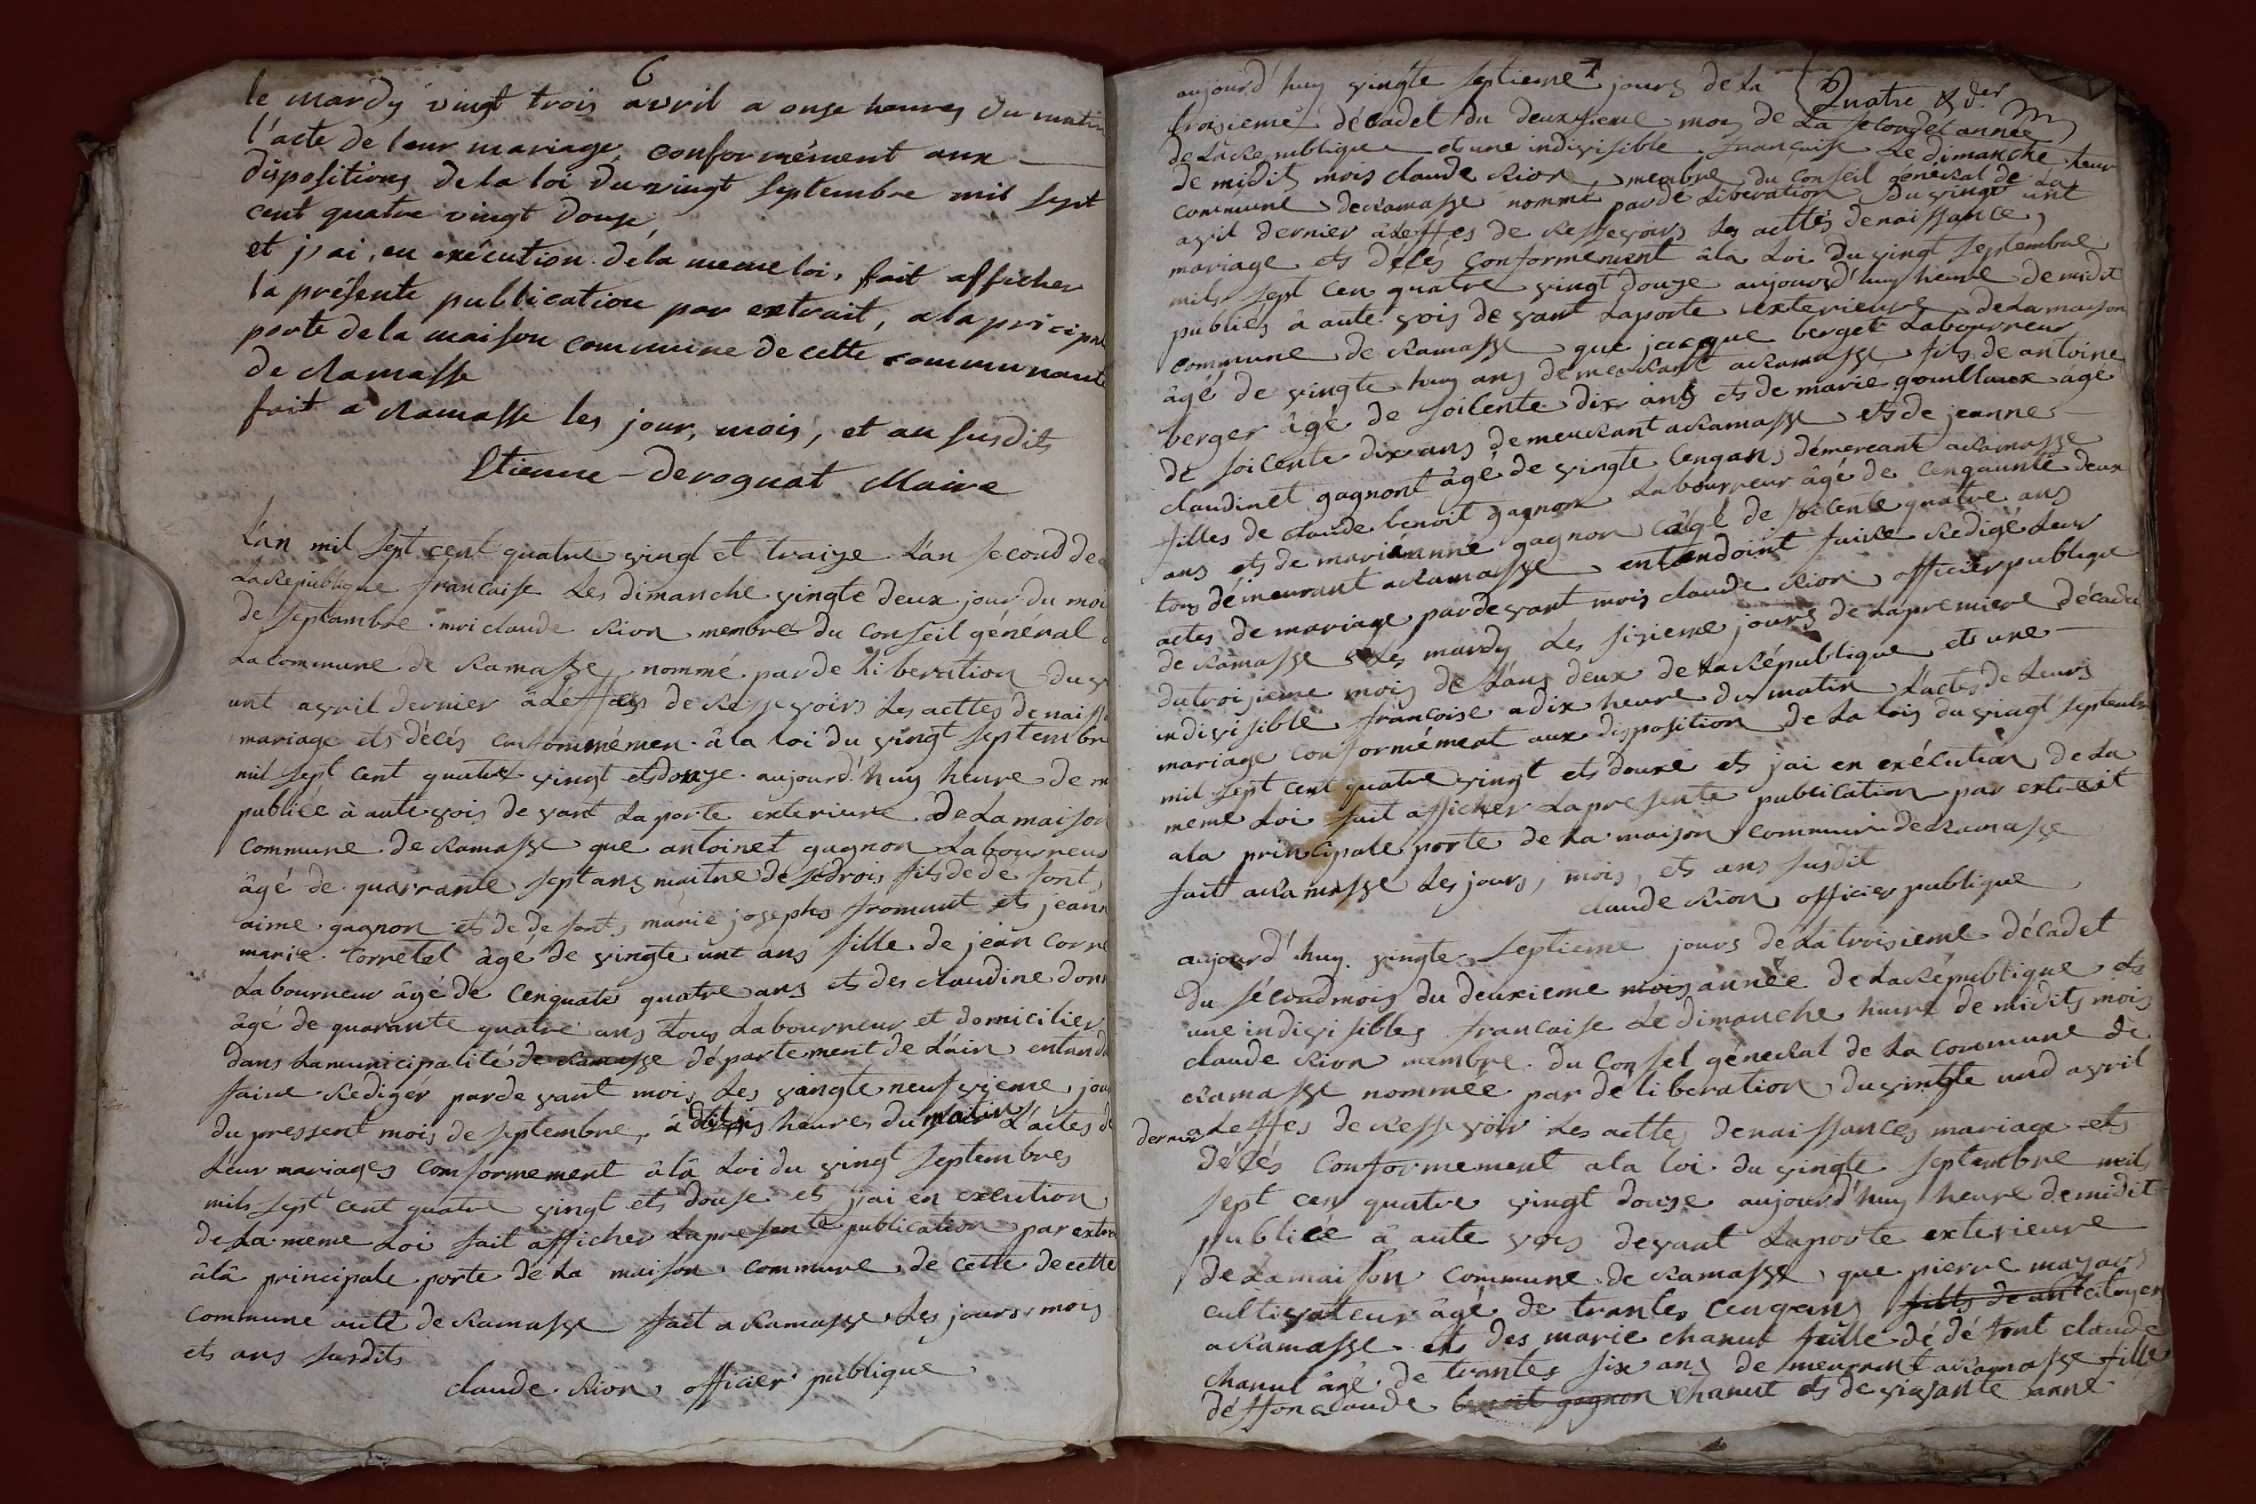 6
le mardy vingt trois avril a onze heures du matin
l'acte de leur mariage, conformément aux
dispositions de la loi du vingt septembre mil sept
cent quatre vingt douze,
et j'ai, en exécution de la meme loi, fait afficher
la présente publication par extrait, a la pricipal
porte de la maison commune de cette communaut
de Ramasse
fait a Ramasse les jour, mois, et an susdits
Etienne Deroguat Maire
L'an mil sept cent quatre vingt et traize L'an second de
La Republique francaise Les dimanche vingte deux jour du moi
de septambre moi claude Rion membre du conseil général
La commune de Ramasse nommé par de liberation du v
unt avril dernier â L'effaes de Ressevoirs Les acttes de naiss
mariage ets décés conformémen à la loi du vingt septembre
mil sept cent quatre vingt ets douze aujourd'huy heure de m
publiée à aute vois de vant La porte exterieure de La maison
commune de Ramasse que antoinet gagnon Labourreur
âgé de quarrante sept ans maitre de sedrois fils de de font
aime gagnon ets de de font marie josephs fromant ets jeann
marie Corretet âgé de vingte unt ans fille de jean corre
Labourreur âgé de cenquate quatre ans ets des claudine don
âgé de quarante quatre ans tous Labourreur et domicilier
dans La municipalité de Ramasse département de L'ain entand
faire Rediger parde vant mois Les vaingte neuf vieme jou
du pressent mois de septembre, à heures du matin L'actes d
Leur mariages comformement âlâ Loi du vingt septembres
mils sept cent quatre vingt ets douse ets jai en execution
de La meme Loi fait afficher La presente publication par extra
âlâ principale porte de La maison commune de cette decette
commune auté de Ramasse fait a Ramasse Les jours, mois
ets ans susdits
claude Rion officier publique
7
Quatre & der
aujourd'huy vingte septieme jours de La
troisieme décadet du deuxsieme moy de La secondet année
de La Republique ets une indivisible francaise Le dimanche heur
de midits mois claude Rion membre du conseil général de La
commune de Ramasse nommé par de Liberation du vingt unt
avril dernier â L'effes de Ressevoirs Les acttés de naissance,
mariage ets décés conformément âla Loi du vingt septembre
mils sept cen quatre vingt douze aujourd'huy heure de midit
publiés à aute vois de vant La porte exterieure de La maison
commune de Ramasse que jacque berget Labourreur
âgé de vingte huy ans demeurant a Ramasse fils de antoine
berger âgé de soicente dix ans ets de marie goullaux âgé
de soicente dix ans demeurant a Ramasse ets de jeanne
claudinet gagnont âgé de vingte cengans démereant a Ramasse
filles de claude benoit gagnon Labourreur âgé de cenquante deux
ans ets de mariannne gagnon âgé de soicente quatre ans
tous démeurant a Ramasse entandoint faire Redigé Leur
actes de mariage par de vant mois claude Rion officier publique
de Ramasse Les mardy Les sizieme jours de La premiere décadet
du troisieme mois de L'ans deux de La République ets une
indivisible francoise a dix heure du matin L'actes de Leurs
mariage conformément aux disposition de La lois du vingt septembre
mil sept cent quatre vingt ets douxe ets jai en exécution de La
meme Loi fait afficher La presente publication par extrait
a la principale porte de La maison commune de Ramasse
fait a Ramasse Les jours, mois, ets ans susdit
claude Rion officier publique
aujourd'huy vingte septieme jours de La troisieme décadet
du sécond mois du deuxieme mois année de La République ets
une indivisibles francaise Le dimanche huire de midits mois
claude Rion membre du Consel géneral de La commune de
Ramasse nommée par de liberation du vintte und avril
dernier a L'effes de Ressevoir Les acttes de naissances mariage ets
décés conformement a la loi du vingte septembre mils
sept cen quatre vingt douze aujourd'huy heure de midit
publiée à aute vois devant La porte exterieure
de La maison commune de Ramasse que pierre mayard
cultivateur âgé de trantes cengans fills de ant citoyen
a Ramasse ets des marie chanut feille dé dé font claude
chanut âgé de trantes six ans de meurant a Ramasse fille
déffon claude benoit gagnon chanut ets de vivante anne